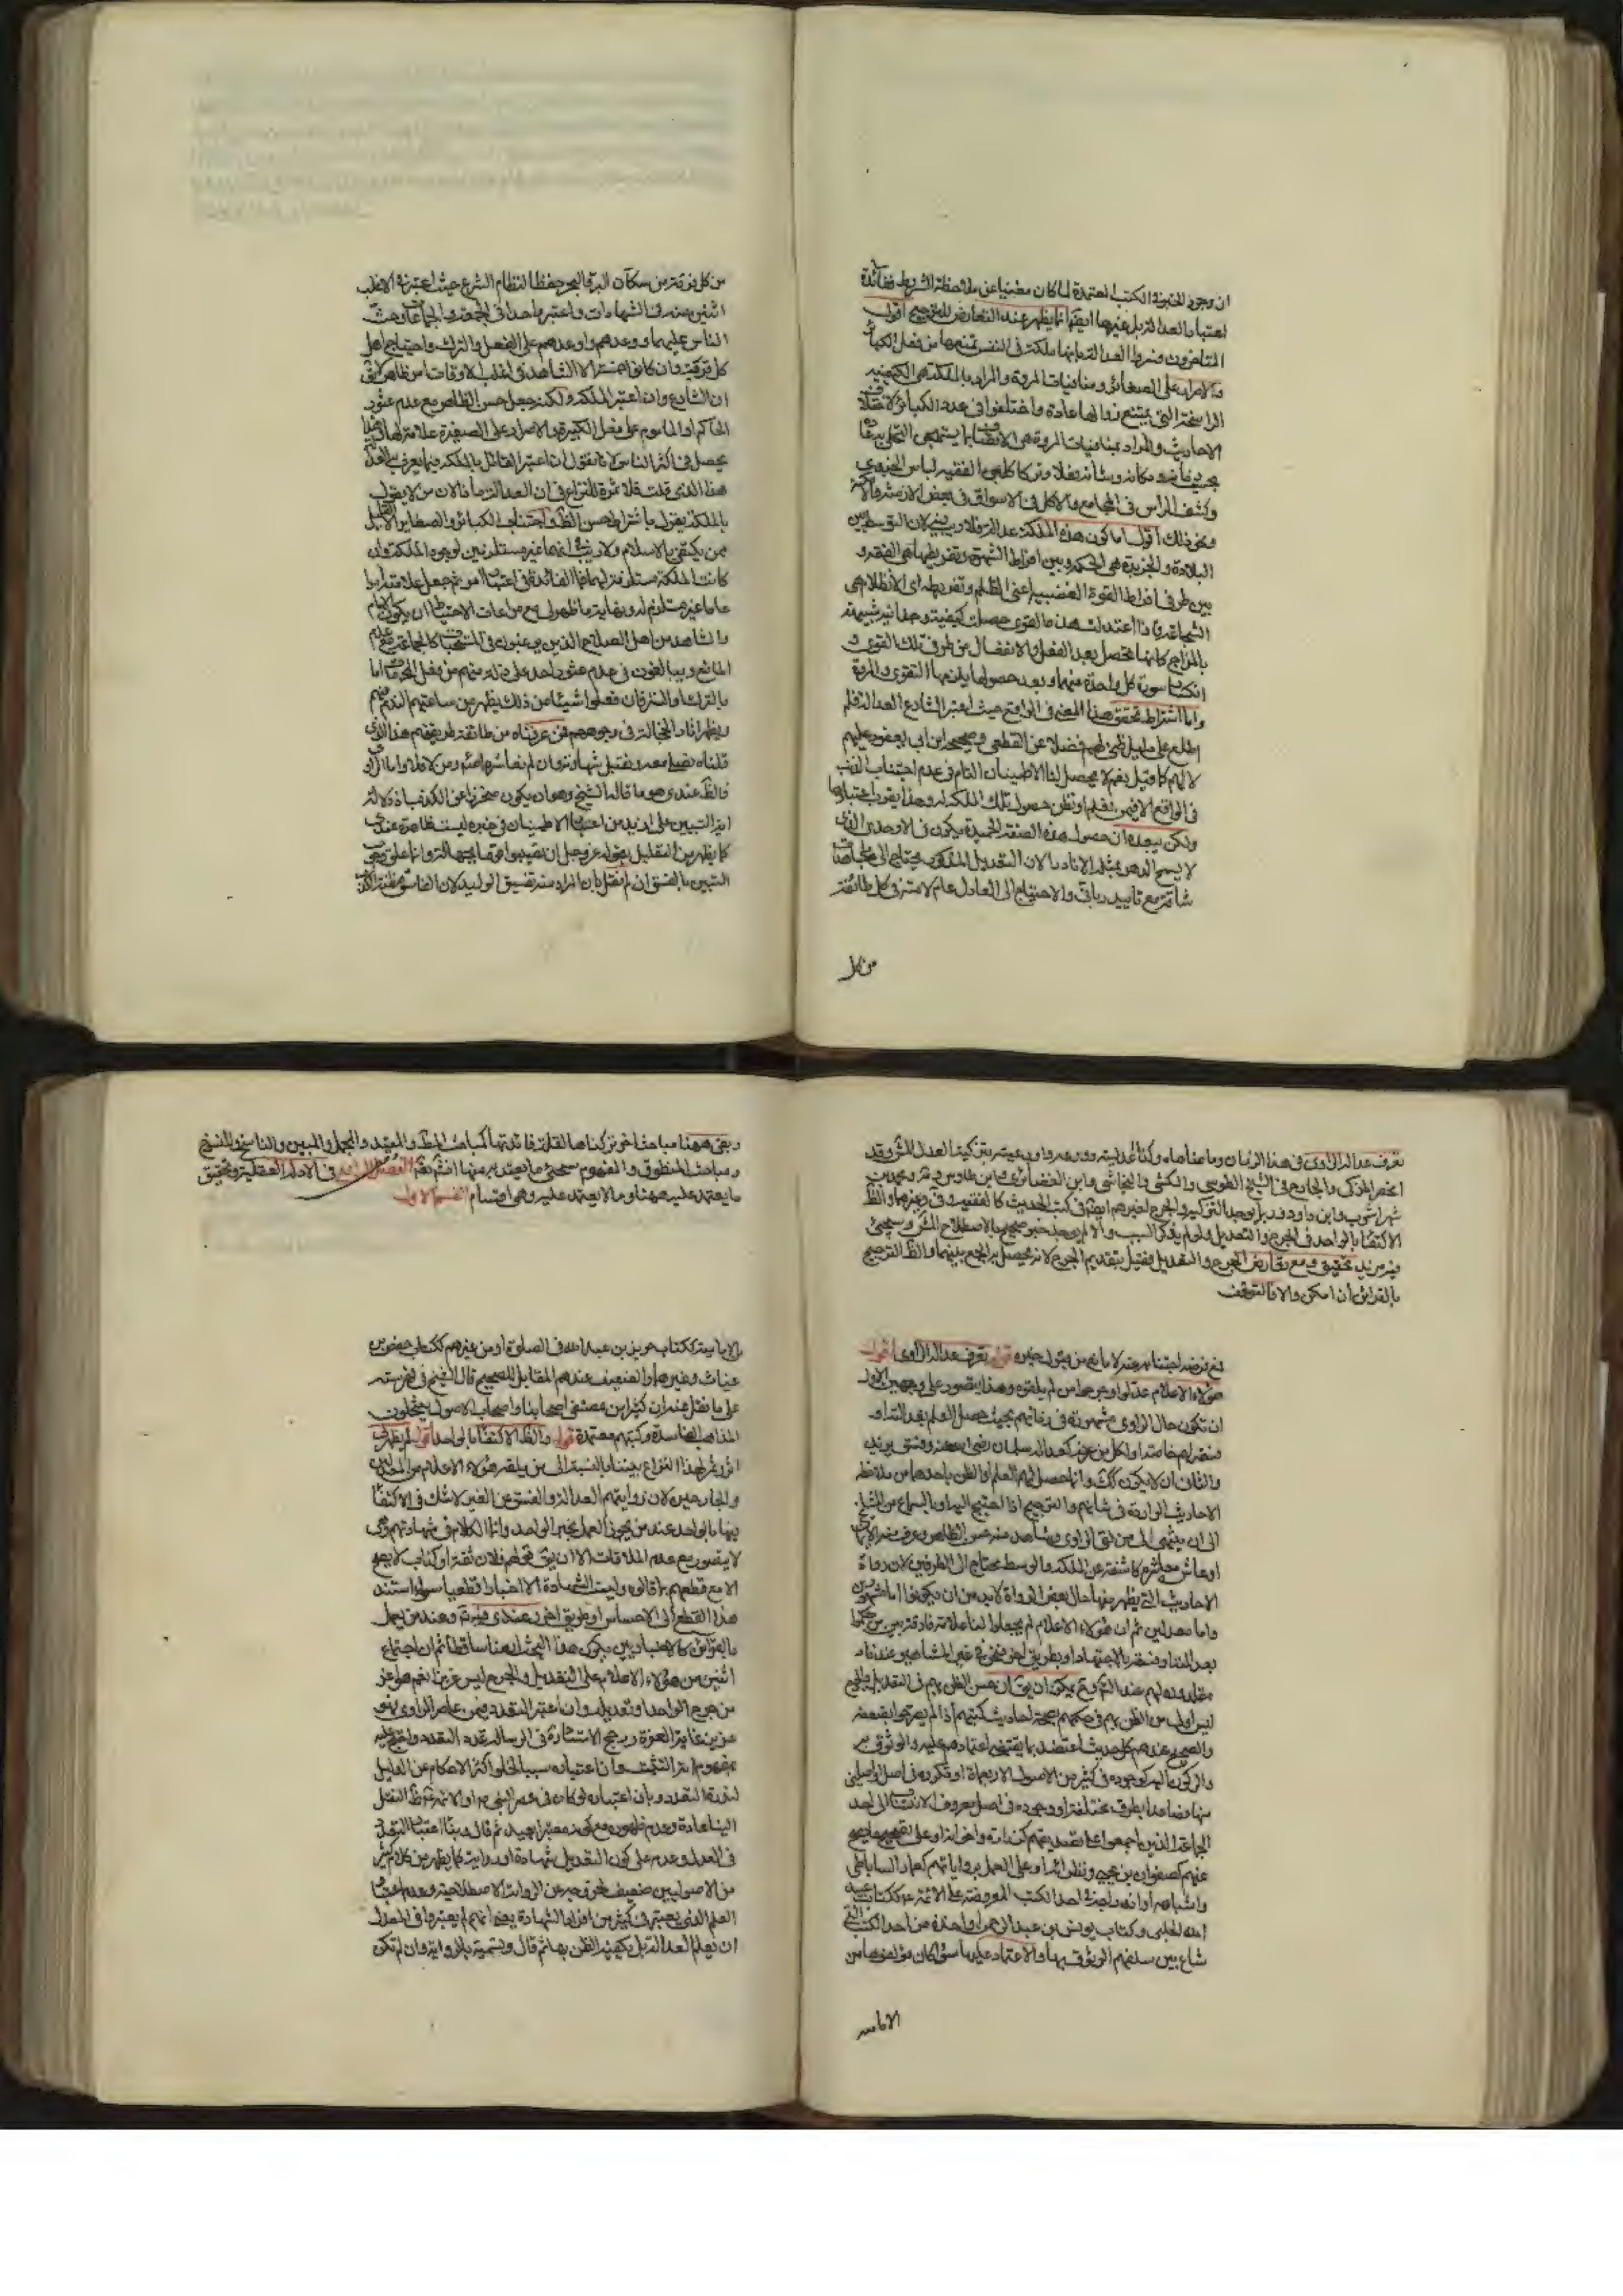 ان وجود الخبر في الكتب المعتمدة لما كان مغنيا عن ملاحظة الشروط ففائدة
اعتبار العدالة بل غيرها ايضا انما يظهر عند التعارض للترجيح اقول
المتاخرون فسروا العدالة بانها ملكة في النفس تمنعها من فعل الكباير
والاصرار على الصغائر ومنافيات المروة والمراد بالملكة هي الكيفية
الراسخة التي يمتنع زوالها عادة واختلفوا في عدد الكبائر لاختلاف
الاحاديث والمراد بمنافيات المروة هي الاتصاف بما يستهجن التحلي به عادة
بحسب زمانه ومكانه وشانه فعلا وتركا كلبس الفقيه لباس الجندي
وكشف الراس في المجامع والاكل في الاسواق في بعض الازمنة والامكنة
ونحو ذلك اقول اما كون هذه الملكة عدالة فلا ريب فيه لان التوسط بين
البلادة والجربزة هي الحكمة وبين افراط الشهوة وتفريطها هي العفة و
بين طرفي افراط القوة الغضبية اعني الظلم وتفريطه اي الانظلام هي
الشجاعة فاذا اعتدلت هذه القوى حصلت كيفية وحدانية شبيهة
بالمزاج كانها تحصل بعد الفعل والانفعال من طرف تلك القوى و
انكسار سورة كل واحدة منها وبعد حصولها يلزمها التقوى والمروة
واما اشتراط تحقق هذا المعنى في الواقع حيث اعتبر الشارع العدالة فلم
اطلع على دليل ظني لهم فضلا عن القطعي وصحيحة ابن ابي يعفور عليهم
لا لهم كما قيل نعم لا يحصل لنا الاطمينان التام في عدم اجتناب الذنب
في الواقع الا فيمن نعلم او نظن حصول تلك الملكة له وهذا يقرب اعتبارها
ولكن يبعده ان حصول هذه الصفة الحميدة يكون في الاوحدي الذي
لا يسمح الدهر بمثله الا نادرا لان التعديل المذكور يحتاج الى مجاهدات
شاقة مع تاييد رباني والاحتياج الى العادل عام لازم في كل طائفة
من كل
من كل فرقة من سكان البر والبحر حفظا لنظام الشرع حيث اعتبر في الاغلب
اثنين منه في الشهادات واعتبر واحدا في الجمعة والجماعات وحث
الناس عليهما ووعدهم واوعدهم على الفعل والترك واحتياج اهل
كل قرية وان كانوا عشرة الا الشاهد في اغلب الاوقات امر ظاهر لا يق
ان الشارع وان اعتبر الملكة ولكنه جعل حسن الظاهر مع عدم عثور
الحاكم او الماموم على فعل الكبيرة والاصرار على الصغيرة علامة لها وهذا
يحصل في اكثر الناس لانا نقول ان اعتبر القائل بالملكة فيما يعرف به العدالة
هذا الذي قلت فلا ثمرة للنزاع في ان العدالة ماذا لان من لا يقول
بالملكة يقول باشتراط حسن الظاهر واجتناب الكبائر والصغاير الا قليل
ممن يكتفي بالاسلام ولا ريب انهما غير مستلزمين لوجود الملكة وان
كانت الملكة مستلزمة لهما فما الفائدة في اعتبار امر ثم جعل علامته امرا
عاما غير مستلزم له وغاية ما ظهر لي مع مراعات الاحتياط ان يكون الامام
والشاهد من اهل الصلاح الذين يرغبون في المستحبات كالجماعة مع عدم
المانع ويبالغون في عدم عثور احد على ذلة منهم من فعل المحرمات اما
بالترك او التستر فان فعلوا شيئا من ذلك يظهر من ساعتهم الندم منهم
ويظهر اثار الخجالة في وجوههم فمن عرفناه من طائفة طريقتهم هذا الذي
قلناه نصلي معه ونقبل شهادته وان لم نعاشره اصلا ومن لا فلا واما الراوي
فالظ عندي هو ما قاله الشيخ وهو ان يكون متحرزا عن الكذب اذ دلالة
اية التبين على ازيد من اعتبار الاطمينان في خبره ليست ظاهرة عندي
كما يظهر من التعليل بقوله عز وجل ان تصيبوا قوما بجهالة وانما علق وجوب
التبين بالفسق ان لم نقل بان المراد منه تفسيق الوليد لان الفاسق مظنة الكذب
تعرف عدالة الراوي في هذا الزمان وما ضاهاه وكذا عدالته وورعه وواوعيته بتزكية العدل المشهور وقد
انحصر المزكي والجارح في الشيخ الطوسي والكشي والنجاشي وابن الغضائري وابن طاوس وغيره ومحمد بن
شهراشوب وابن داود وربما يوجد التزكية والجرح لغيرهم ايضا في كتب الحديث كالفقيه وغيره والظ
الاكتفاء بالواحد في الجرح والتعديل ولو لم يذكر السبب والا لم يوجد خبر صحيح بالاصطلاح المشهور وسيجيئ
فيه مزيد تحقيق ومع تعارض الجرح والتعديل فقيل بتقديم الجرح لانه يحصل به الجمع بينهما والظ الترجيح
بالقرائن ان امكن والا فالتوقف
قوله تعرف عدالة الراوي اقول
هؤلاء الاعلام عدلوا وجرحوا من لم يلقوه وهذا يتصور على وجهين الاول
ان تكون حال الراوي مشهورة في زمانهم بحيث حصل العلم بعدالته او
فسقه لهم خاصة او لكل من عرفه كعدالة سلمان رضي الله عنه وفسق يزيد
والثاني ان لا يكون كذلك وانما حصل لهم العلم او الظن باحدهما من ملاحظة
الاحاديث الواردة في شانهم والترجيح اذا احتيج اليه او بالسماع من المشايخ
الى ان ينتهي الى من لقي الراوي وشاهد منه حسن الظاهر وعرف منه الايمان
او عاش معاشرة كاشفة عن الملكة والوسط محتاج الى الطرفين لان رواة
الاحاديث التي يظهر منها حال بعض الرواة لابد من ان يكونوا اما مشهورين
واما معدلين ثم ان هؤلاء الاعلام لم يجعلوا لنا علامة فارقة بين من حكموا
بعدالته او فسقه بالاجتهاد او بطريق اخر فنحن في غير المشاهير عندنا
مقلدون لهم عند التحقيق نعم يمكن ان يق ان حسن الظن بهم في التعديل والجرح
ليس اولى من الظن بهم في حكمهم بصحة احاديث كتبهم اذا لم يصرحوا بضعفه
والصحيح عندهم كل حديث اعتضد بما يقتضي اعتمادهم عليه والوثوق به
والركون اليه كوجوده في كثير من الاصول الاربعماة او تكرره في اصل او اصلين
منها فصاعدا بطرق مختلفة او وجوده في اصل معروف الانتساب الى احد
الجماعة الذين اجمعوا على تصديقهم كزرارة واضرابه او على تصحيح ما يصح
عنهم كصفوان بن يحيى ونظرائه او على العمل برواياتهم كعمار الساباطي
واشباهه او اندراجه في احد الكتب المعروضة على الائمة ع ككتاب عبيد
الله الحلبي وكتاب يونس بن عبد الرحمن او اخذه من احد الكتب التي
شاع بين سلفهم الوثوق بها والاعتماد عليها سواء كان مؤلفوها من
الامامية
وبقي ههنا مباحث اخر تركناها لقلة فائدتها كمباحث المطلق والمقيد والمجمل والمبين والناسخ والمنسوخ
ومباحث المنطوق والمفهوم سيجئ ما يعتد به منها انش تعالى الفصل الرابع في الادلة العقلية وتحقيق
ما يعتمد عليه منها وما لا يعتمد عليه وهي اقسام القسم الاول
الامامية ككتاب حريز بن عبد الله في الصلوة او من غيرهم ككتاب حفص بن
غياث وغيرها والضعيف عندهم المقابل للصحيح قال الشيخ في فهرسته
على ما نقل عنه ان كثيرا من مصنفي اصحابنا واصحاب الاصول ينتحلون
المذاهب الفاسدة وكتبهم معتمدة قوله والظ الاكتفاء بالواحد اقول لم يظهر لي
اثر وثمر لهذا النزاع بيننا بالنسبة الى من يلقه هؤلاء الاعلام من المعدلين
والجارحين لان روايتهم العدالة والفسق عن الغير لا شك في الاكتفاء
فيها بالواحد عند من يجوز العمل بخبر الواحد وانما الكلام في شهادتهم وهي
لا يتصور مع عدم الملاقات الا ان يق قولهم فلان ثقة او كذاب لا يصح
الا مع قطعهم بما قالوه وليست الشهادة الا اخبارا قطعيا سواء استند
هذا القطع الى الاحساس او طريق اخر وعندي فيه نظر وعند من يعمل
بالقرائن كالاخباريين يكون هذا البحث ايضا ساقطا ثم ان اجتماع
اثنين من هؤلاء الاعلام على التعديل والجرح ليس عزيزا نعم هو اعز
من جرح الواحد وتعديله وان اعتبر التعدد فيمن عاصر الراوي فهو
عزيز غاية العزة ورجح الاستاد في الرسالة عدم التعدد واحتج عليه
بمفهوم اية التثبت وان اعتباره سبب لخلو اكثر الاحكام عن الدليل
لندرة التعدد وبان اعتباره لو كان في عصر النبي ص او الائمة ع لظ النقل
الينا عادة وعدم ظهوره مع كونه معتبرا بعيد ثم قال وبناء اعتبار التعدد
في العدل وعدمه على كون التعديل شهادة او رواية كما يظهر من كلام كثير
من الاصوليين ضعيف لخروجه عن الرواية الاصطلاحية وعدم اعتبار
العلم الذي يعتبر في كثير من افراد الشهادة فيه انهم لم يعتبروا في المعدل
ان يعلم العدالة بل يكفيه الظن بها ثم قال وتسميته بالرواية وان لم تكن